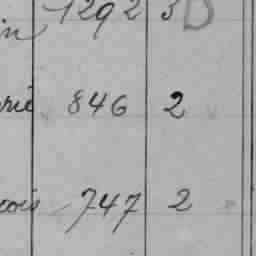 in 1292 3 D
rie 846 2
cois 747 2